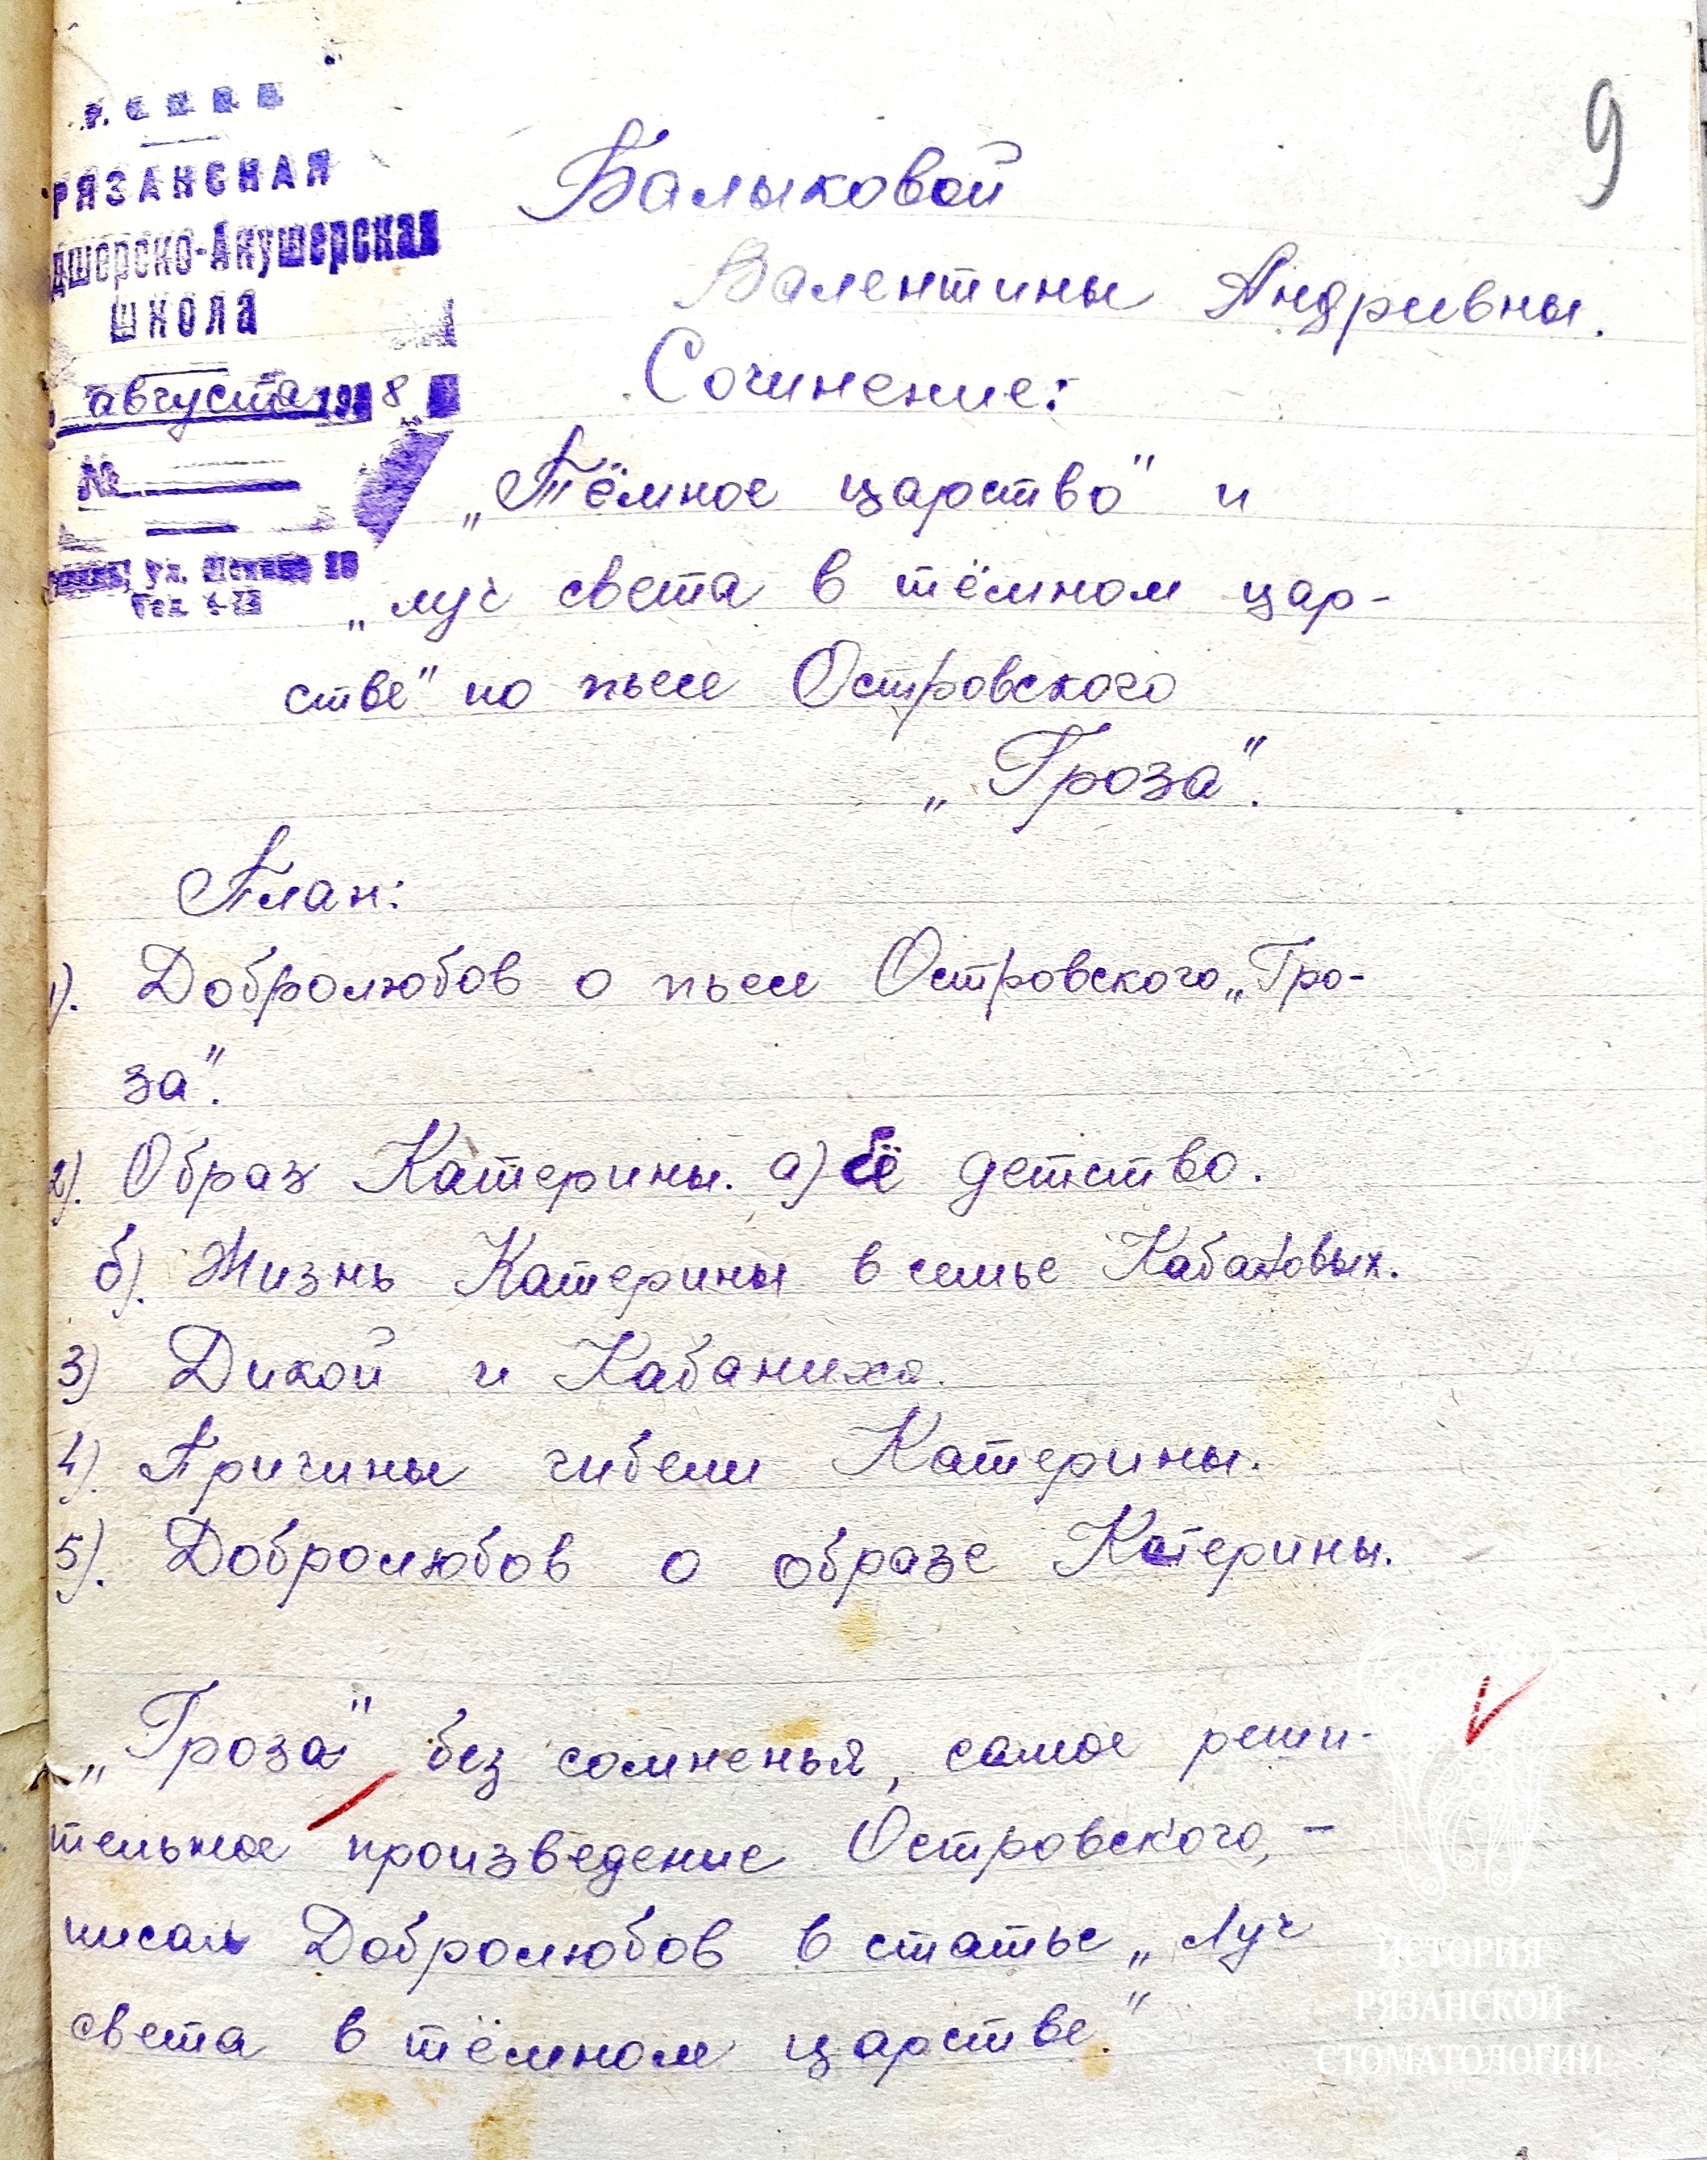 9
РЯЗАНСКАЯ
дшерско-Акушерская
ШКОЛА
августа 19 8
№
ул.
Балыковой
Валентины Андривны.
Сочинение:
„Тёмное царство" и
„луч света в тёмном цар-
стве" по пьесе Островского
„Гроза".
План:
1). Добролюбов о пьесе Островского „Гро-
за".
2). Образ Катерины. а) Её детство.
б). Жизнь Катерины в семье Кабановых.
3) Дикой и Кабаниха.
4). Причины гибели Катерины.
5). Добролюбов о образе Катерины.
„Гроза" без сомненья, самое реши-
тельное произведение Островского, –
писал Добролюбов в статье „Луч
света в тёмном царстве."
ИСТОРИЯ
РЯЗАНСКОЙ
СТОМАТОЛОГИИ